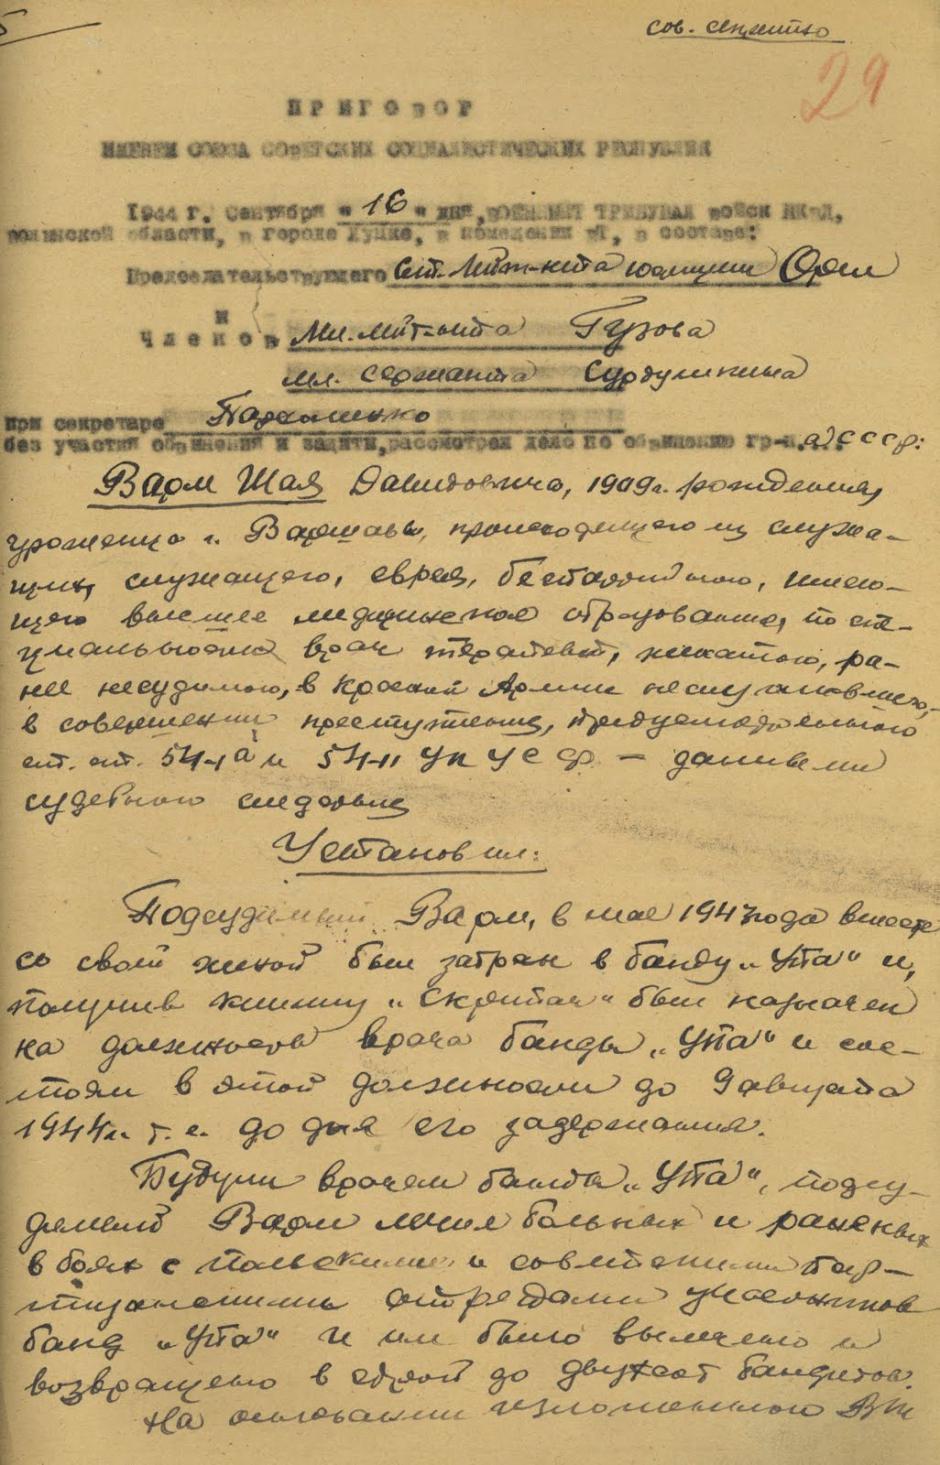 сов. секретно
29
ПРИГОВОР
ИМЕНЕМ СОЮЗА СОВЕТСКИХ СОЦИАЛИСТИЧЕСКИХ РЕСПУБЛИК
1944 г. Сентября "16" дня, ВОЕННЫЙ ТРИБУНАЛ войск НКВД,
волынской области, в городе Луцке, в помещении ВТ, в составе:
Председательствующего Ст. Лейт-нта юстиции Орел
и
Членов Мл. лейт-нта Гузова
мл. сержанта Сурдушкина
при секретаре Пархоменко
без участия обвинения и защиты, рассмотрел дело по обвинению гр-н.а СССР:
Варм Шая Давидовича, 1909 г. рождения,
уроженца г. Варшавы, происходящего из служа-
щих, служащего, еврея, беспартийного, имею-
щего высшее медицинское образование, по спе-
циальности врач терапевт, женатого, ра-
нее несудимого, в Красной Армии не служившего,
в совершении преступления, предусмотренного
ст. ст. 54-1а и 54-11 УК УССР – данными
судебного следствия
Установил:
Подсудимый Варм, в мае 1943 года вместе
со своей женой был забран в банду "УПА" и,
получив кличку "Скрипач" был назначен
на должность врача банды "УПА" и сос-
тоял в этой должности до 9 августа
1944 г. т. е. до дня его задержания.
Будучи врачем банды "УПА", подсу-
димый Варм лечил больных и раненых
в боях с польскими и советскими пар-
тизанскими отрядами участников
банд "УПА" и им было вылечено и
возвращено в строй до двухсот бандитов.
На основании изложенного ВТ